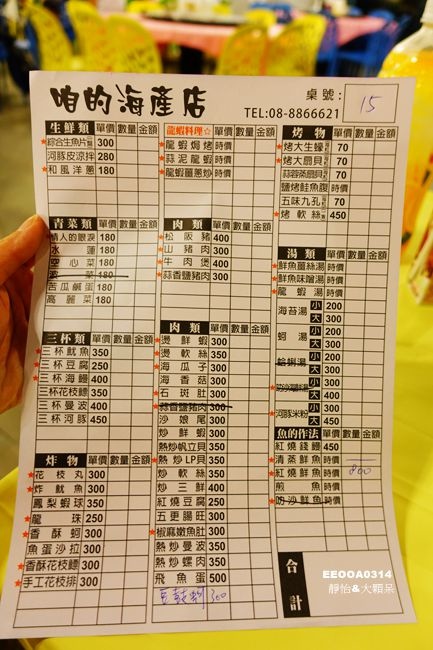 咱的海產店
桌號: 15
TEL:08-8866621
生鮮類 單價 數量 金額
綜合生魚片 300
河豚皮涼拌 280
和風洋蔥 180
青菜類 單價 數量 金額
情人的眼淚 180
水蓮 180
空心菜 180
菠菜 180
苦瓜鹹蛋 180
高麗菜 180
三杯類 單價 數量 金額
三杯魷魚 350
三杯豆腐 250
三杯海鱺 400
三杯花枝鏢 350
三杯曼波 400
三杯河豚 450
炸物 單價 數量 金額
花枝丸 300
炸魷魚 300
鳳梨蝦球 350
龍珠 250
香酥蚵 300
魚蛋沙拉 300
香酥花枝鏢 300
手工花枝排 300
龍蝦料理☆ 單價 數量 金額
龍蝦焗烤 時價
蒜泥龍蝦 時價
龍蝦薑蔥炒 時價
肉類 單價 數量 金額
松阪豬 400
山豬肉 300
牛肉煲 400
蒜香鹽豬肉 300
肉類 單價 數量 金額
燙鮮蝦 300
燙軟絲 350
海瓜子 300
海香菇 300
石斑肚 300
蒜香鹽豬肉 300
沙娘尾 300
炒鮮蝦 300
熱炒帆立貝 350
熱炒LP貝 350
炒軟絲 350
炒三鮮 400
紅燒豆腐 250
五更腸旺 300
椒麻嫩魚肚 300
熱炒曼波 350
熱炒螺肉 350
飛魚蛋 500
豆鼓蚵 300
烤物 單價 數量 金額
烤大生蠔 70
烤大扇貝 70
蒜蓉蒸扇貝
鹽烤鮭魚腹 時價
五味九孔 70
烤軟絲 450
湯類 單價 數量 金額
鮮魚薑絲湯 時價
鮮魚味噌湯 時價
龍蝦湯 時價
海苔湯 小 200
大 300
蚵湯 小 200
大 300
蛤蜊湯 小 200
大 300
小 300
大 400
河豚米粉 小 300
大 450
魚的作法 單價 數量 金額
紅燒錢鰻 450
清蒸鮮魚 時價 800
煎魚 時價
奶汁鮮魚 時價
合計
EEOOA0314
靜怡&大顆呆